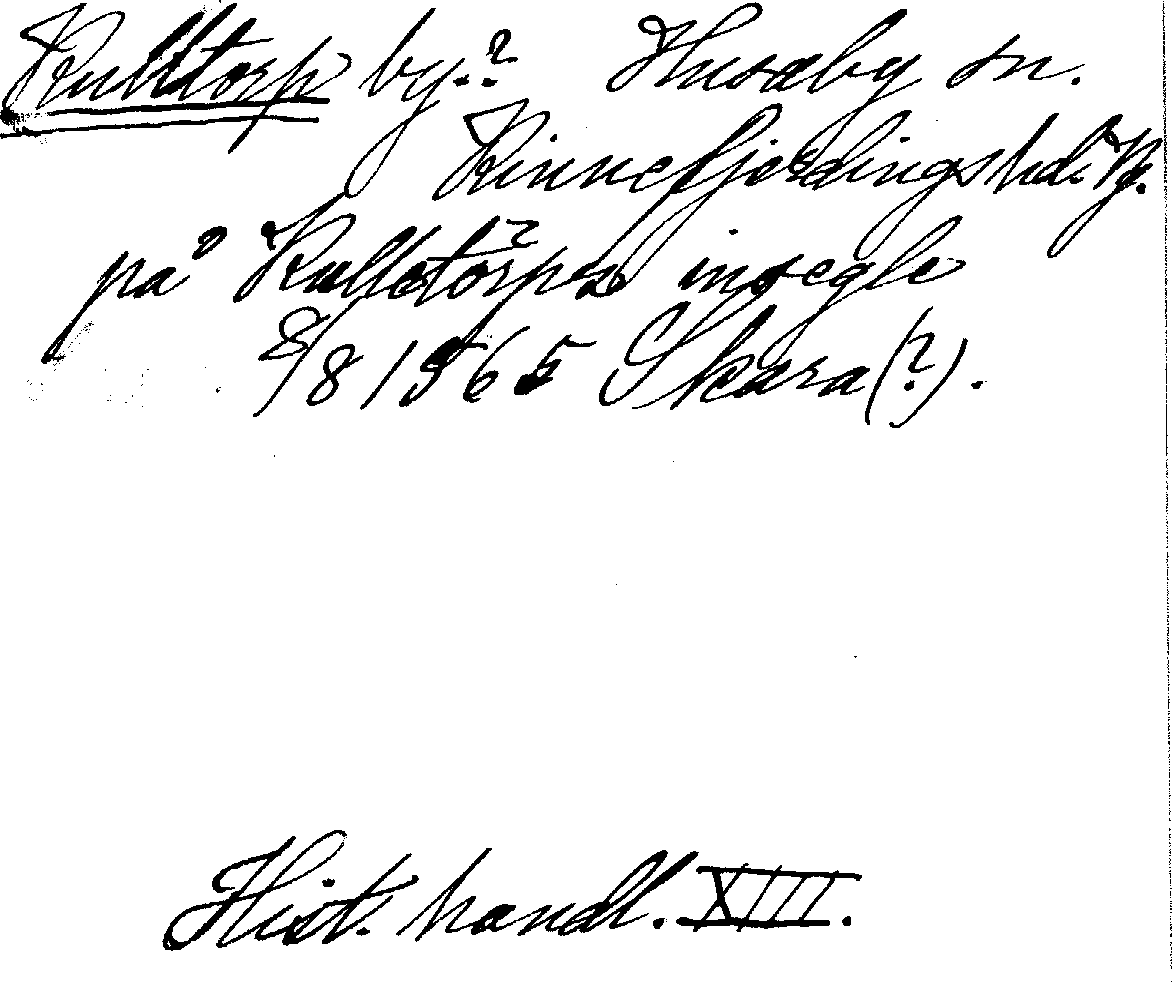 Kulltorp by.? Husaby sn.
Kinnefjerdings hd. Vg.
på Kulletorps insegle
8/8 1565 Skara (?).
Hist. handl. XIII.